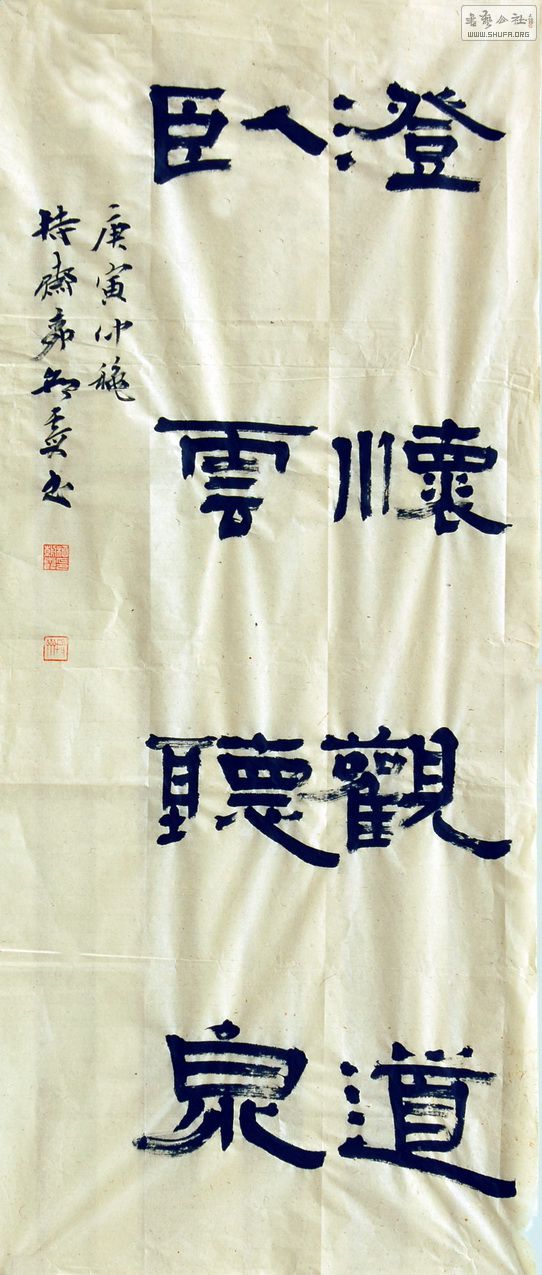 澄懷觀道
臥雲聽泉
庚寅仲秋
書藝公社
WWW.SHUFA.ORG